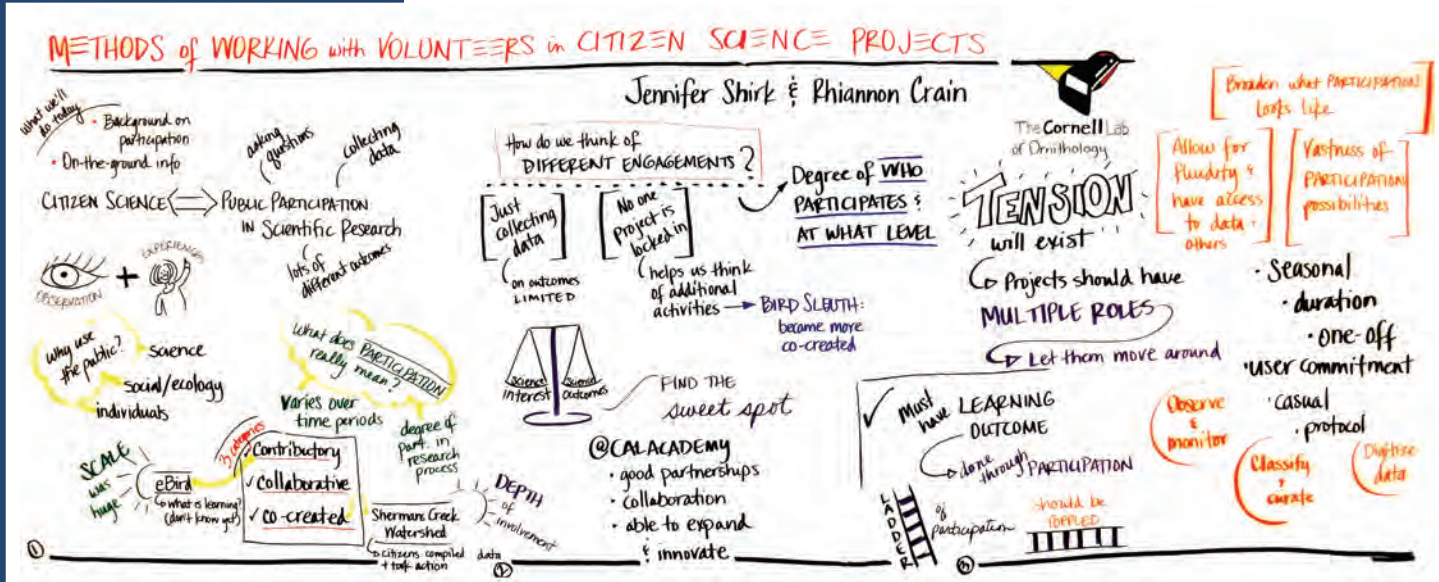 METHODS of WORKING with VOLUNTEERS in CITIZEN SCIENCE PROJECTS
Jennifer Shirk & Rhiannon Crain
What we'll
do today
• Background on
participation
• On-the-ground info
asking
questions
collecting
data
CITIZEN SCIENCE ⟺ PUBLIC PARTICIPATION
IN Scientific Research
lots of
different outcomes
OBSERVATION
+
EXPERIENCES
Why use
the public?
science
social/ecology
individuals
What does PARTICIPATION
really mean?
Varies over
time periods
degree of
part. in
research
process
SCALE
was
huge
eBird
what is learning?
(don't know yet)
3 categories
✓ Contributory
✓ collaborative
✓ co-created
Shermans Creek
Watershed
citizens compiled data
+ took action
DEPTH
of
involvement
1
How do we think of
DIFFERENT ENGAGEMENTS?
[Just
collecting
data]
on outcomes
LIMITED
[No one
Project is
locked in]
helps us think
of additional
activities → BIRD SLEUTH:
became more
co-created
Degree of WHO
PARTICIPATES &
AT WHAT LEVEL
science
interest
science
outcomes
FIND THE
sweet spot
@CALACADEMY
• good partnerships
• collaboration
• able to expand
& innovate
2
The Cornell Lab
of Ornithology
TENSION
will exist
Projects should have
MULTIPLE ROLES
Let them move around
✓ Must
have LEARNING
OUTCOME
done
through PARTICIPATION
LADDER
of
participation
should be
TOPPLED
[Broaden what PARTICIPATION
Looks like]
[Allow for
fluidity &
have access
to data •
others]
[Vastness of
PARTICIPATION
possibilities]
• Seasonal
• duration
• one-off
• user commitment
• casual
• protocol
Observe
&
monitor
Classify
&
curate
Digitize
data